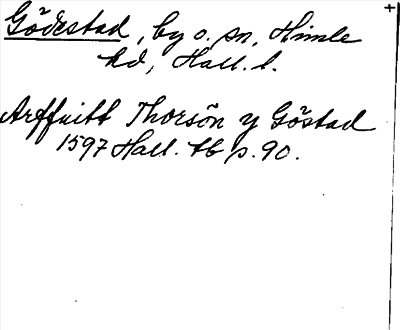 Gödestad, by o. sn, Himle
hd, Hall. l.
Arffuitt Thorsön y Göstad
1597 Hall. tb p. 90.